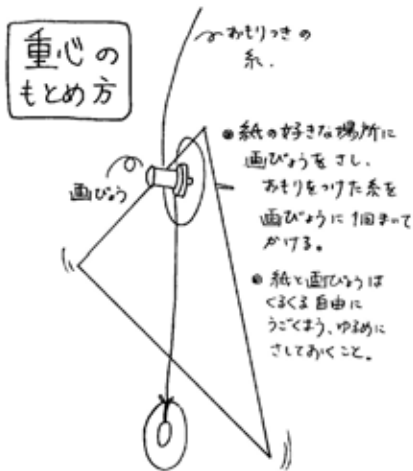 重心の
もとめ方
おもりつきの
糸.
画びょう
●紙の好きな場所に
画びょうをさし、
おもりをつけた糸を
画びょうに1回まいて
かける。
●紙と画びょうは
くるくる自由に
うごくよう、ゆるめに
さしておくこと。